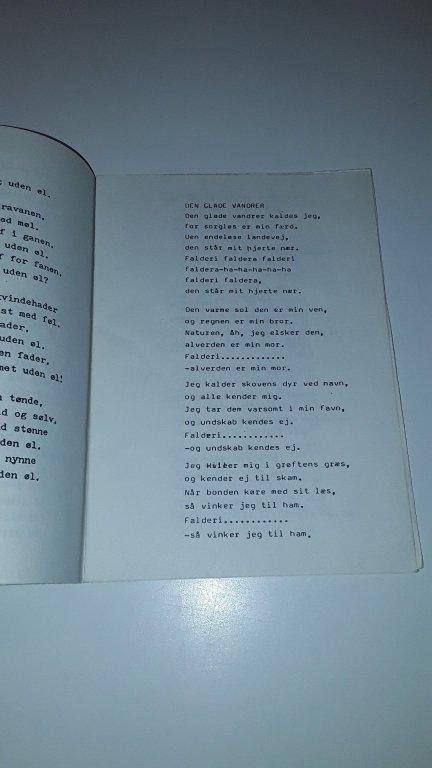 uden øl.
ravanen,
ed møl.
f i ganen,
uden øl.
f for fanen,
uden øl?
vindehader
st med føl.
ader,
uden øl.
en fader,
met uden øl!
n tønde,
ld og sølv,
d stønne
den øl.
nynne
den øl.
DEN GLADE VANDRER
Den glade vandrer kaldes jeg,
for sorgløs er min færd.
Den endeløse landevej,
den står mit hjerte nær.
Falderi faldera falderi
faldera-ha-ha-ha-ha-ha
falderi faldera,
den står mit hjerte nær.
Den varme sol den er min ven,
og regnen er min bror.
Naturen, åh, jeg elsker den,
alverden er min mor.
Falderi.............
-alverden er min mor.
Jeg kalder skovens dyr ved navn,
og alle kender mig.
Jeg tar dem varsomt i min favn,
og undskab kendes ej.
Falderi............
-og undskab kendes ej.
Jeg hviler mig i grøftens græs,
og kender ej til skam.
Når bonden køre med sit læs,
så vinker jeg til ham.
Falderi............
-så vinker jeg til ham.